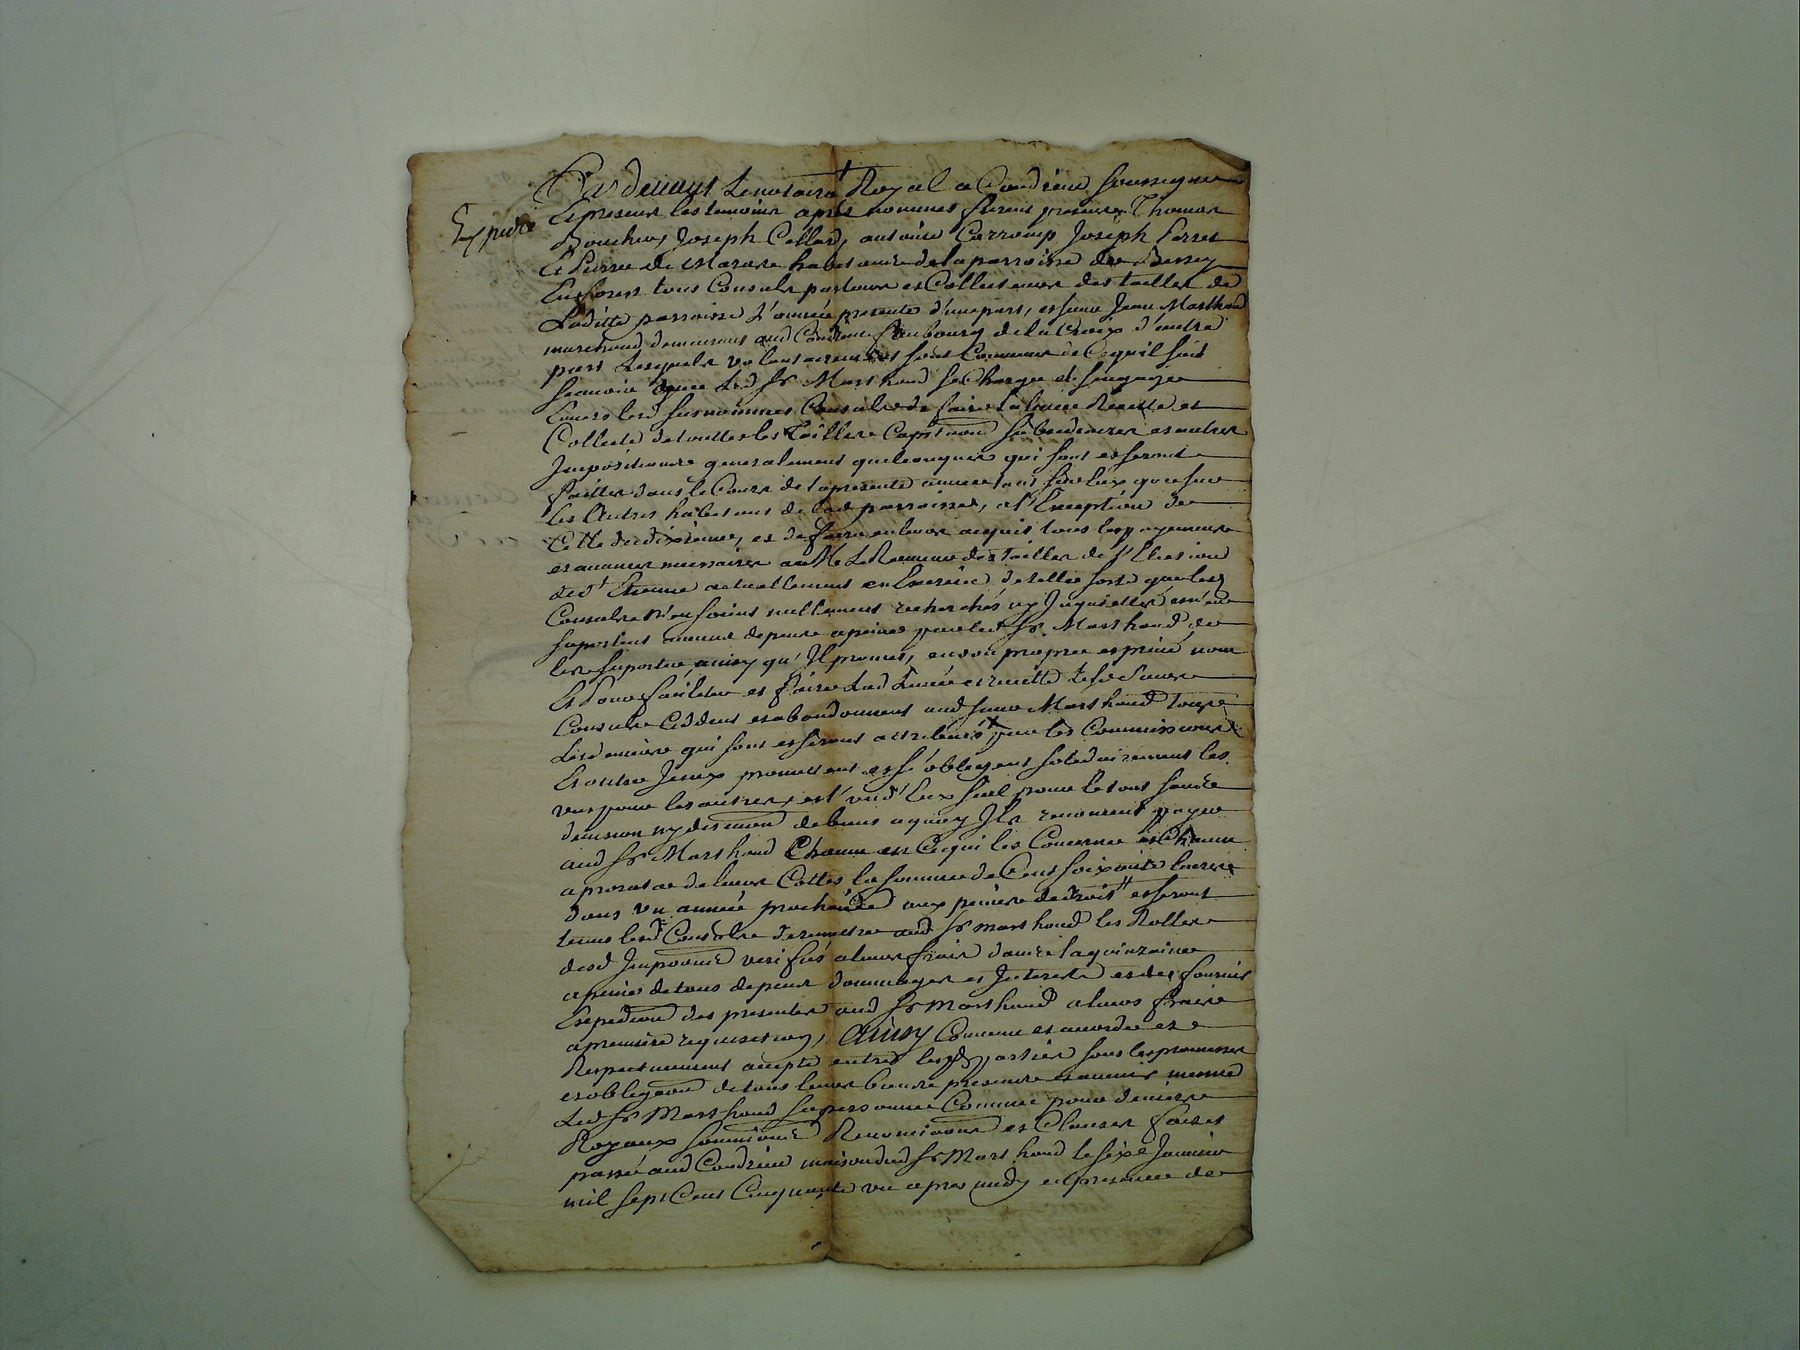 Pardevant Le notaire Royal a Condrieu soussigné
Expedié
Et presents les temoins après nommes furent presents Thomas
Boucher, Joseph Cellard, antoine Carromp Joseph Ferret
Et Pierre de Marare habitants de la parroisse de Bessey
En forest tous Consuls porteurs et Collecteurs des tailles de
Laditte parroisse L'année presente d'une part, et sieur Jean Marthoud
marchand demeurant aud Condrieu fauxbourg de la Croix d'autre
part Lesquels volontairement sont Convenus de Ce quil suit
Scavoir que Led Sr Marthoud se Charge et s'engage
Envers lesd susnommes Consuls de faire la levée Recette et
Collecte de touttes les Tailles Capitaon subcidaires et autres
Impositions generalement quelconques qui sont et seront
faittes dans le Cours de la presente année tant sur Eux que sur
les Autres habitants de lad parroisse, a l'Exception de
Celle du dixieme, et de faire en leurs acquit tous les payements
et avances necessaires au Mr Le Receveur des tailles de l'Election
de St Etienne actuellement en Exercice de telle sorte que lesd
Consuls n'en soient nullement recherchés ny Inquiettés et n'en
suportent aucuns depens a peine par led Sr Marthoud de
les suporter, ainsy qu'Il promet, en son propre et privé nom
Et Pour faciliter et faire Lad Levée et recette lesd Sieurs
Consuls Cedent et abandonnent aud sieur Marthoud tous
Les deniers qui sont et seront attribués par les Commissions
Et outre Iceux promettent et s'obligent solidairement les
uns pour les autres, et l'un d'Eux seul pour le tout sans
division ny discution de biens a quoy Ils renoncent payer
aud Sr Marthoud Chacun en Ce qui les Concerne et Chacun
a prorata de leurs Cottes la somme de Cent soixante livres
dans un année prochaine aux peines de droit et seront
tenus lesd Consuls de remettre aud Sr Marthoud les Rolles
desd Impoons verifiés a leurs frais dans la quinzaine
a peine de tous depens dommages et Interests et de fournir
Expedition des presentes aud Sr Marthoud a leurs frais
a premiere requisition, Ainsy Convenu et accordé et
Respectivement accepté entre lesd parties sous les promesses
et obligaons de tous leurs biens presents et avenir meme
Led Sr Marthoud sa personne Comme pour deniers
Royaux soumissions Renonciaons et Clauses fait et
passé aud Condrieu maison dud Sr Marthoud le six Janvier
mil sept Cent Cinquante un apres midy en presence de